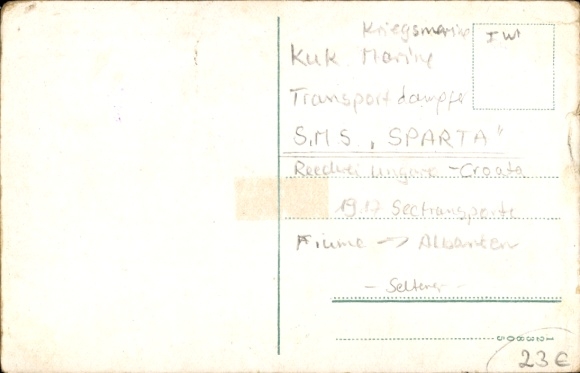 Kriegsmarine
I WK
KuK Marine
Transportdampfer
S.M.S. „SPARTA"
Reederei Ungaro-Croata
1917 Seetransporte
Fiume → Albanien
- Seltener -
23 €